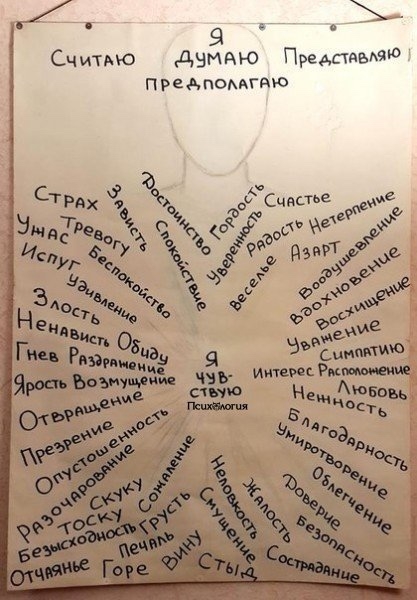 Я
Считаю Думаю Представляю
предполагаю
Страх
Ужас
Тревогу
Испуг
Беспокойство
Удивление
Зависть
Достоинство
Спокойствие
Гордость
Уверенность
Счастье
Радость
Веселье
Нетерпение
Азарт
Воодушевление
Вдохновение
Восхищение
Уважение
Симпатию
Интерес Расположение
Любовь
Нежность
Благодарность
Умиротворение
Облегчение
Доверие
Безопасность
Сострадание
Жалость
Неловкость
Смущение
Стыд
Вину
Сожаление
Грусть
Печаль
Горе
Отчаянье
Безысходность
Тоску
Скуку
Разочарование
Опустошенность
Презрение
Отвращение
Ярость Возмущение
Гнев Раздражение
Ненависть Обиду
Злость
Я
чув-
ствую
Психология